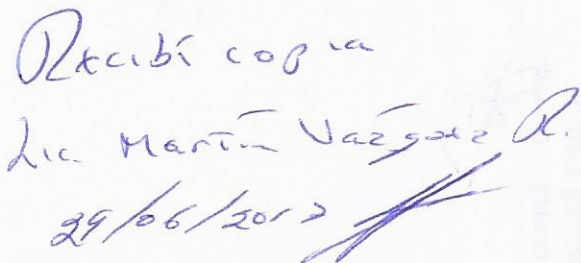 Recibí copia
Lic. Martín Vázquez R.
29/06/2017